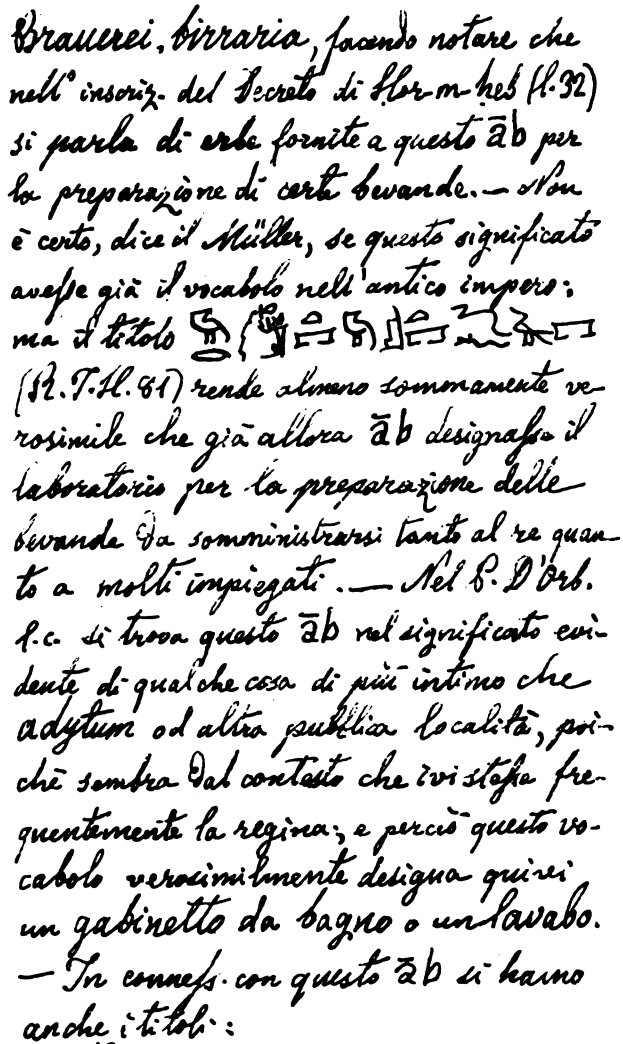 Brauerei, birraria, facendo notare che
nell' inscriz. del Decreto di Hor-m-heb (l. 32)
si parla di erbe fornite a questo āb per
la preparazione di certe bevande. — Non
è certo, dice il Müller, se questo significato
avesse già il vocabolo nell' antico impero;
ma il titolo
(R.I.H. 81) rende almeno sommamente ve-
rosimile che già allora āb designasse il
laboratorio per la preparazione delle
bevande da somministrarsi tanto al re quan-
to a molti impiegati. — Nel P. D'Orb.
l.c. si trova questo āb nel significato evi-
dente di qualche cosa di più intimo che
adytum od altra pubblica località, poi-
chè sembra dal contesto che ivi stesse fre-
quentemente la regina; e perciò questo vo-
cabolo verosimilmente designa quivi
un gabinetto da bagno o un lavabo.
— In conness. con questo āb si hanno
anche i titoli: